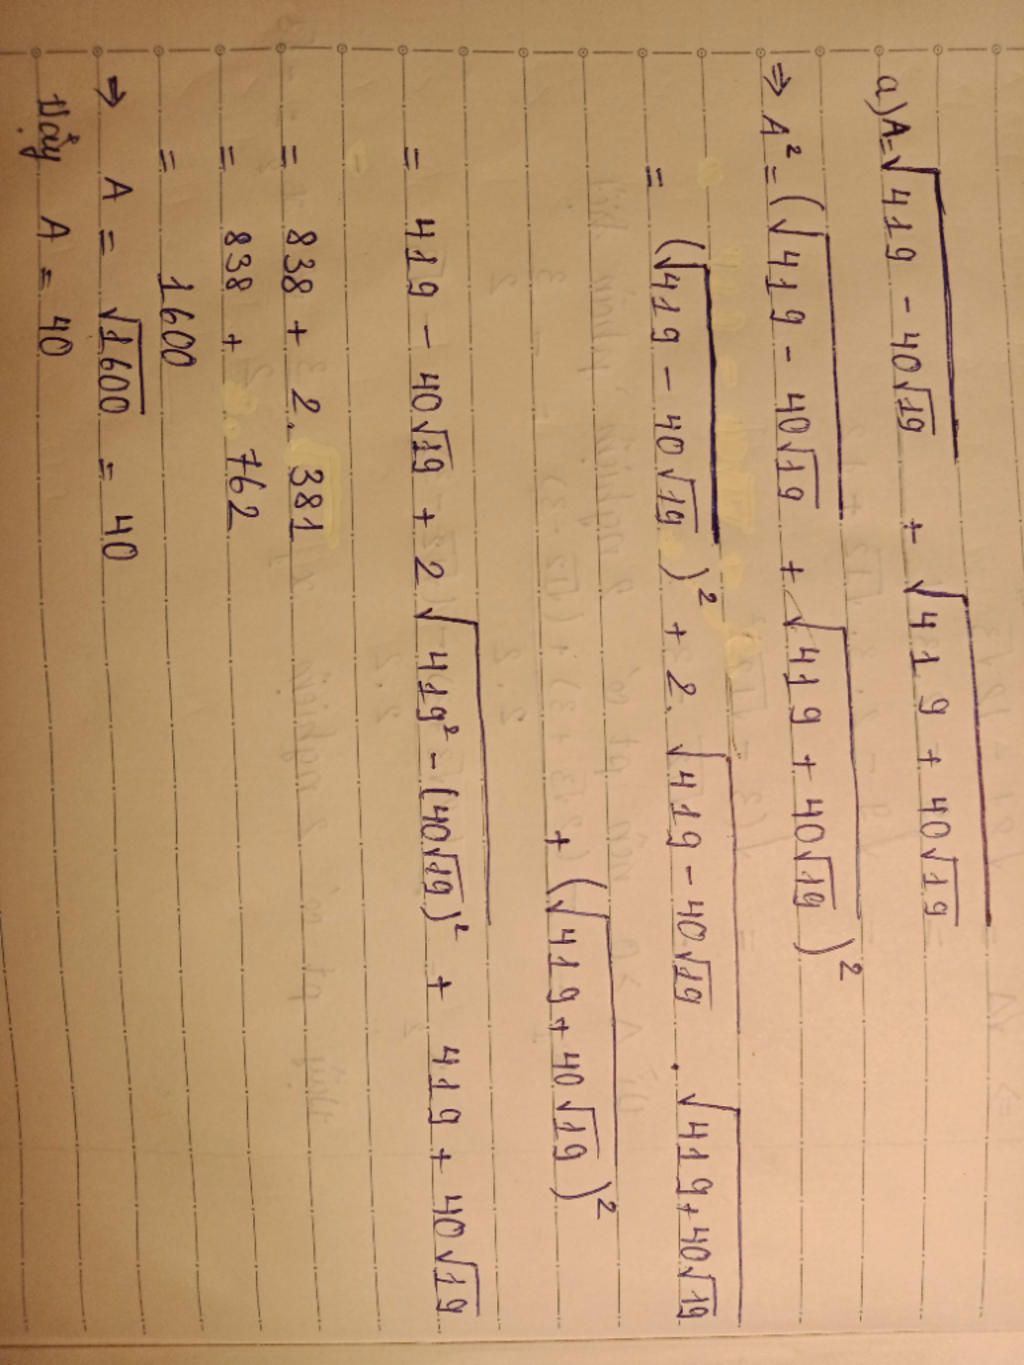 a) A = √(419 - 40√19) + √(419 + 40√19)
⇒ A² = (√(419 - 40√19) + √(419 + 40√19))²
= (√(419 - 40√19))² + 2.√(419 - 40√19) . √(419 + 40√19)
+ (√(419 + 40√19))²
= 419 - 40√19 + 2√(419² - (40√19)²) + 419 + 40√19
= 838 + 2. 381
= 838 + 762
= 1600
⇒ A = √1600 = 40
Vậy A = 40